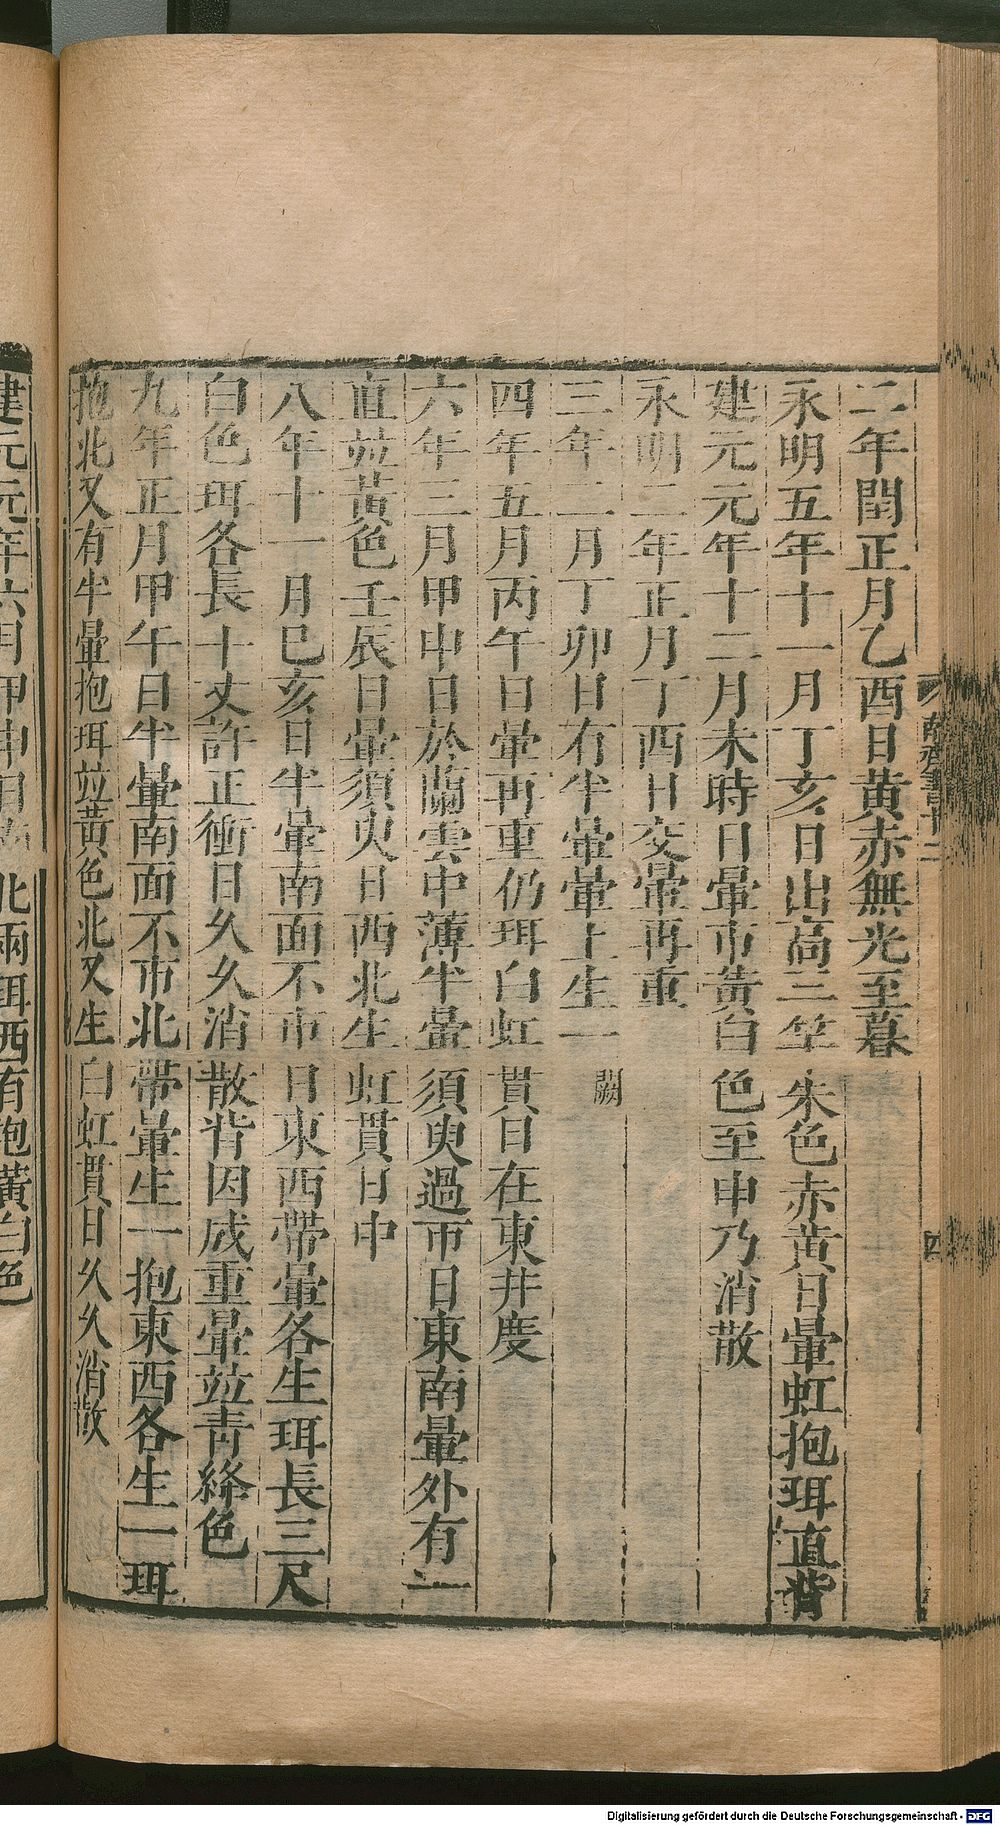 二年閏正月乙酉日黃赤無光至暮
永明五年十一月丁亥日出高三竿朱色赤黃日暈虹抱珥直背
建元元年十二月未時日暈帀黃白色至申乃消散
永明二年正月丁酉日交暈再重
三年二月丁卯日有半暈暈上生一闕
四年五月丙午日暈再重仍珥白虹貫日在東井度
六年三月甲申日於蘭雲中薄半暈須臾過帀日東南暈外有一
直竝黃色壬辰日暈須臾日西北生虹貫日中
八年十一月己亥日半暈南面不帀日東西帶暈各生珥長三尺
白色珥各長十丈許正衝日久久消散背因成重暈竝靑絳色
九年正月甲午日半暈南面不帀北帶暈生一抱東西各生一珥
抱北又有半暈抱珥竝黃色北又生白虹貫日久久消散
南齊書十二
四
建元元年六月甲申日
北兩珥西有抱黃白色
Digitalisierung gefördert durch die Deutsche Forschungsgemeinschaft - DFG